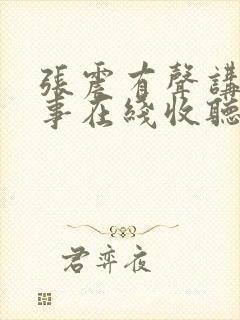 張震有聲講
事在綫收聽
君弈夜